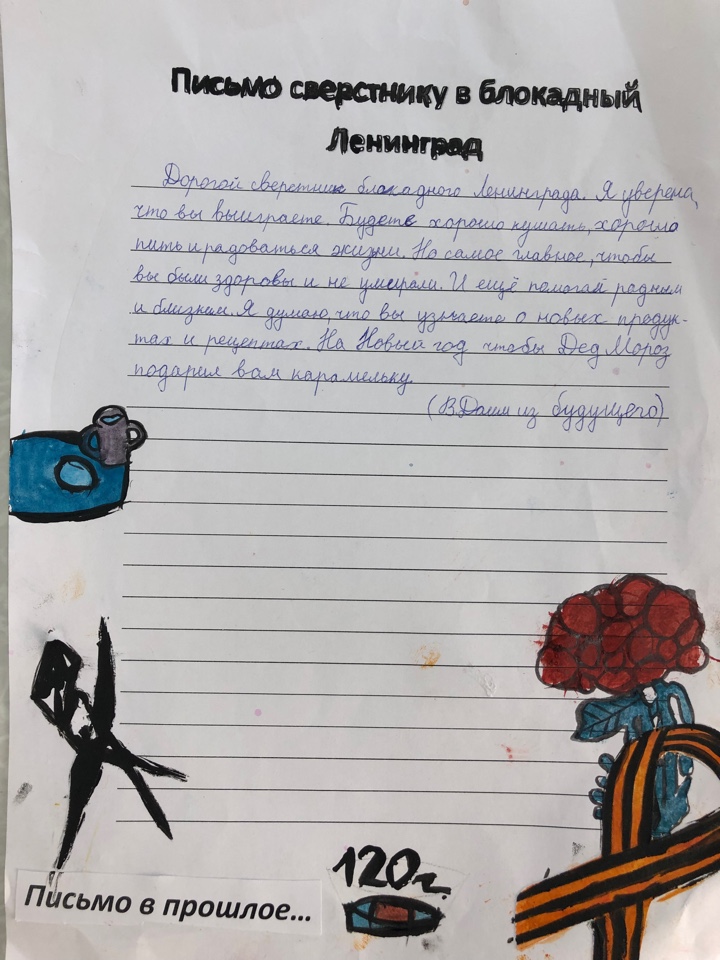 Письмо сверстнику в блокадный
Ленинград
Дорогой сверстник блокадного Ленинграда. Я уверена,
что вы выиграете. Будете хорошо кушать, хорошо
пить и радоваться жизни. Но самое главное, чтобы
вы были здоровы и не умирали. И ещё помогай родным
и близким. Я думаю, что вы узнаете о новых продук-
тах и рецептах. На Новый год чтобы Дед Мороз
подарил вам карамельку.
из будущего)
120г.
Письмо в прошлое...